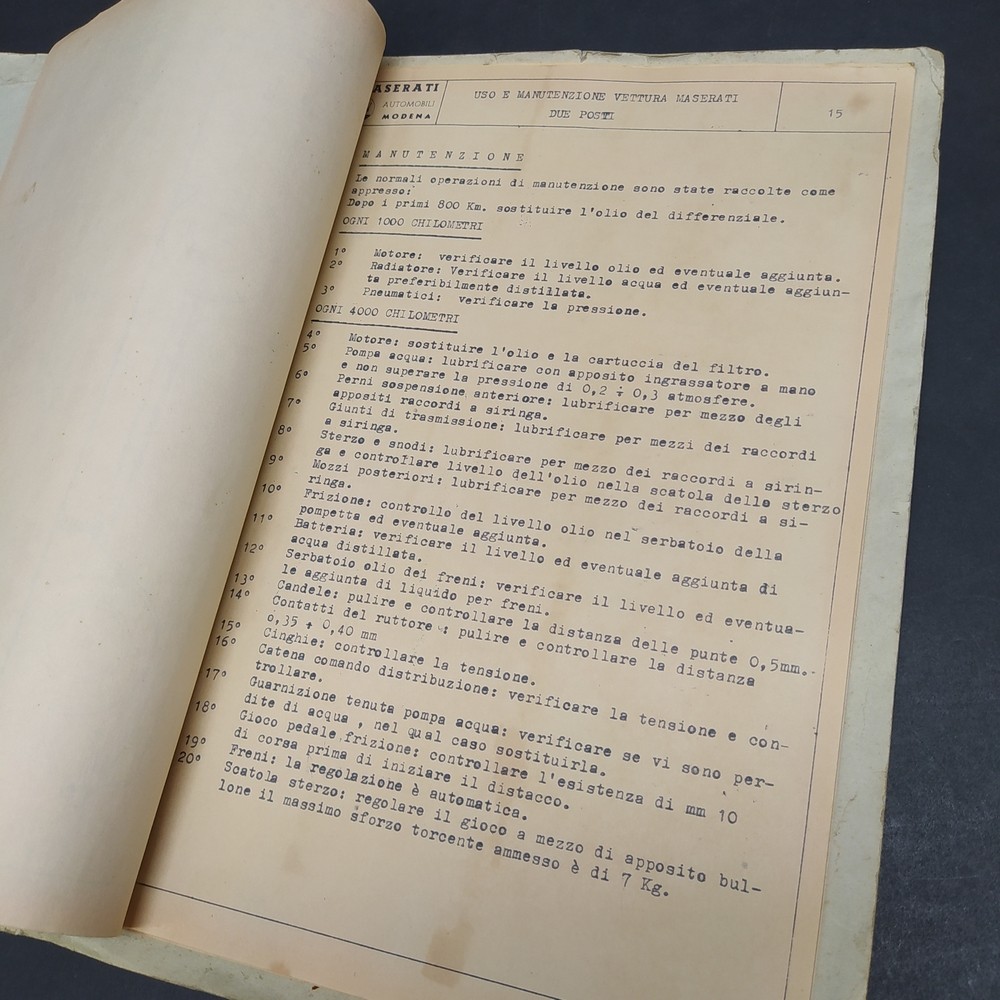 MASERATI
AUTOMOBILI
MODENA
USO E MANUTENZIONE VETTURA MASERATI
DUE POSTI
15
M A N U T E N Z I O N E
Le normali operazioni di manutenzione sono state raccolte come
appresso:
Dopo i primi 800 Km. sostituire l'olio del differenziale.
OGNI 1000 CHILOMETRI
1° Motore: verificare il livello olio ed eventuale aggiunta.
2° Radiatore: Verificare il livello acqua ed eventuale aggiun-
ta preferibilmente distillata.
3° Pneumatici: verificare la pressione.
OGNI 4000 CHILOMETRI
4° Motore: sostituire l'olio e la cartuccia del filtro.
5° Pompa acqua: lubrificare con apposito ingrassatore a mano
e non superare la pressione di 0,2 ÷ 0,3 atmosfere.
6° Perni sospensione anteriore: lubrificare per mezzo degli
appositi raccordi a siringa.
7° Giunti di trasmissione: lubrificare per mezzi dei raccordi
a siringa.
8° Sterzo e snodi: lubrificare per mezzo dei raccordi a sirin-
ga e controllare livello dell'olio nella scatola dello sterzo
9° Mozzi posteriori: lubrificare per mezzo dei raccordi a si-
ringa.
10° Frizione: controllo del livello olio nel serbatoio della
pompetta ed eventuale aggiunta.
11° Batteria: verificare il livello ed eventuale aggiunta di
acqua distillata.
12° Serbatoio olio dei freni: verificare il livello ed eventua-
le aggiunta di liquido per freni.
13° Candele: pulire e controllare la distanza delle punte 0,5mm.
14° Contatti del ruttore : pulire e controllare la distanza
0,35 ÷ 0,40 mm
15° Cinghie: controllare la tensione.
16° Catena comando distribuzione: verificare la tensione e con-
trollare.
17° Guarnizione tenuta pompa acqua: verificare se vi sono per-
dite di acqua , nel qual caso sostituirla.
18° Gioco pedale frizione: controllare l'esistenza di mm 10
di corsa prima di iniziare il distacco.
19° Freni: la regolazione è automatica.
20° Scatola sterzo: regolare il gioco a mezzo di apposito bul-
lone il massimo sforzo torcente ammesso è di 7 Kg.